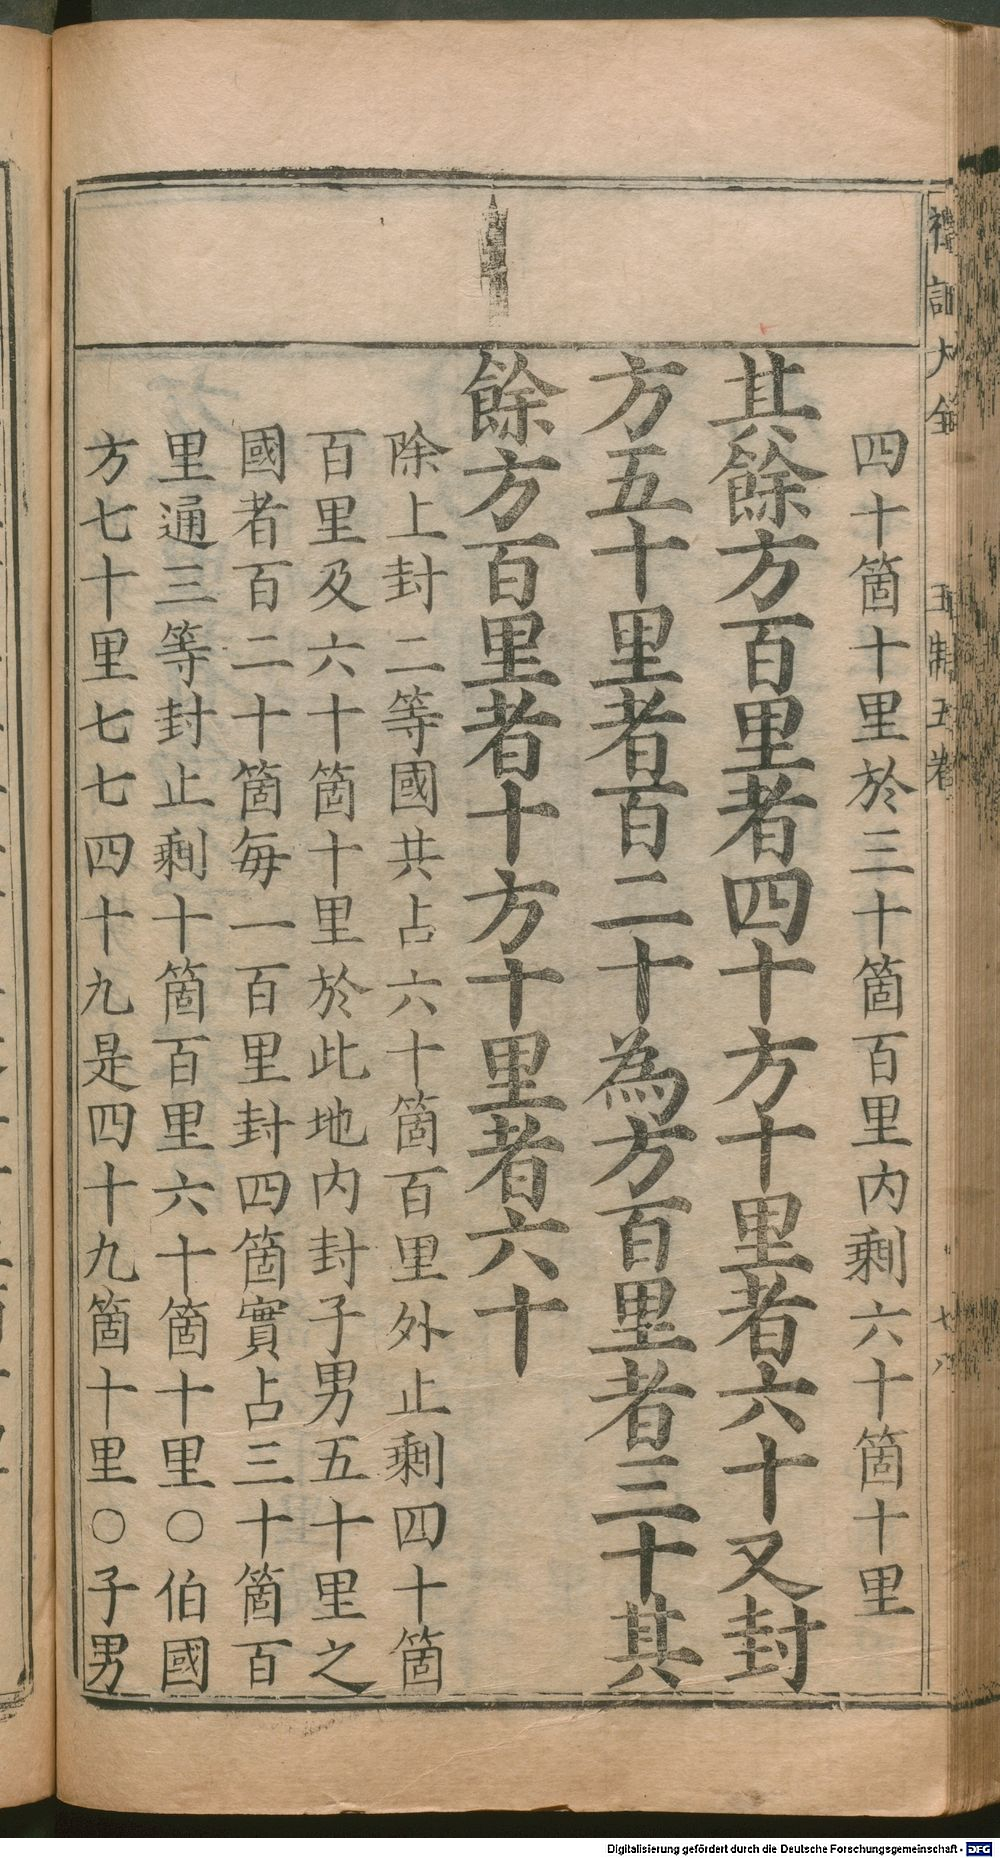 四十箇十里於三十箇百里内剩六十箇十里
其餘方百里者四十方十里者六十又封
方五十里者百二十為方百里者三十其
餘方百里者十方十里者六十
除上封二等國共占六十箇百里外止剩四十箇
百里及六十箇十里於此地内封子男五十里之
國者百二十箇每一百里封四箇實占三十箇百
里通三等封止剩十箇百里六十箇十里○伯國
方七十里七七四十九是四十九箇十里○子男
大全
Digitalisierung gefördert durch die Deutsche Forschungsgemeinschaft - DFG